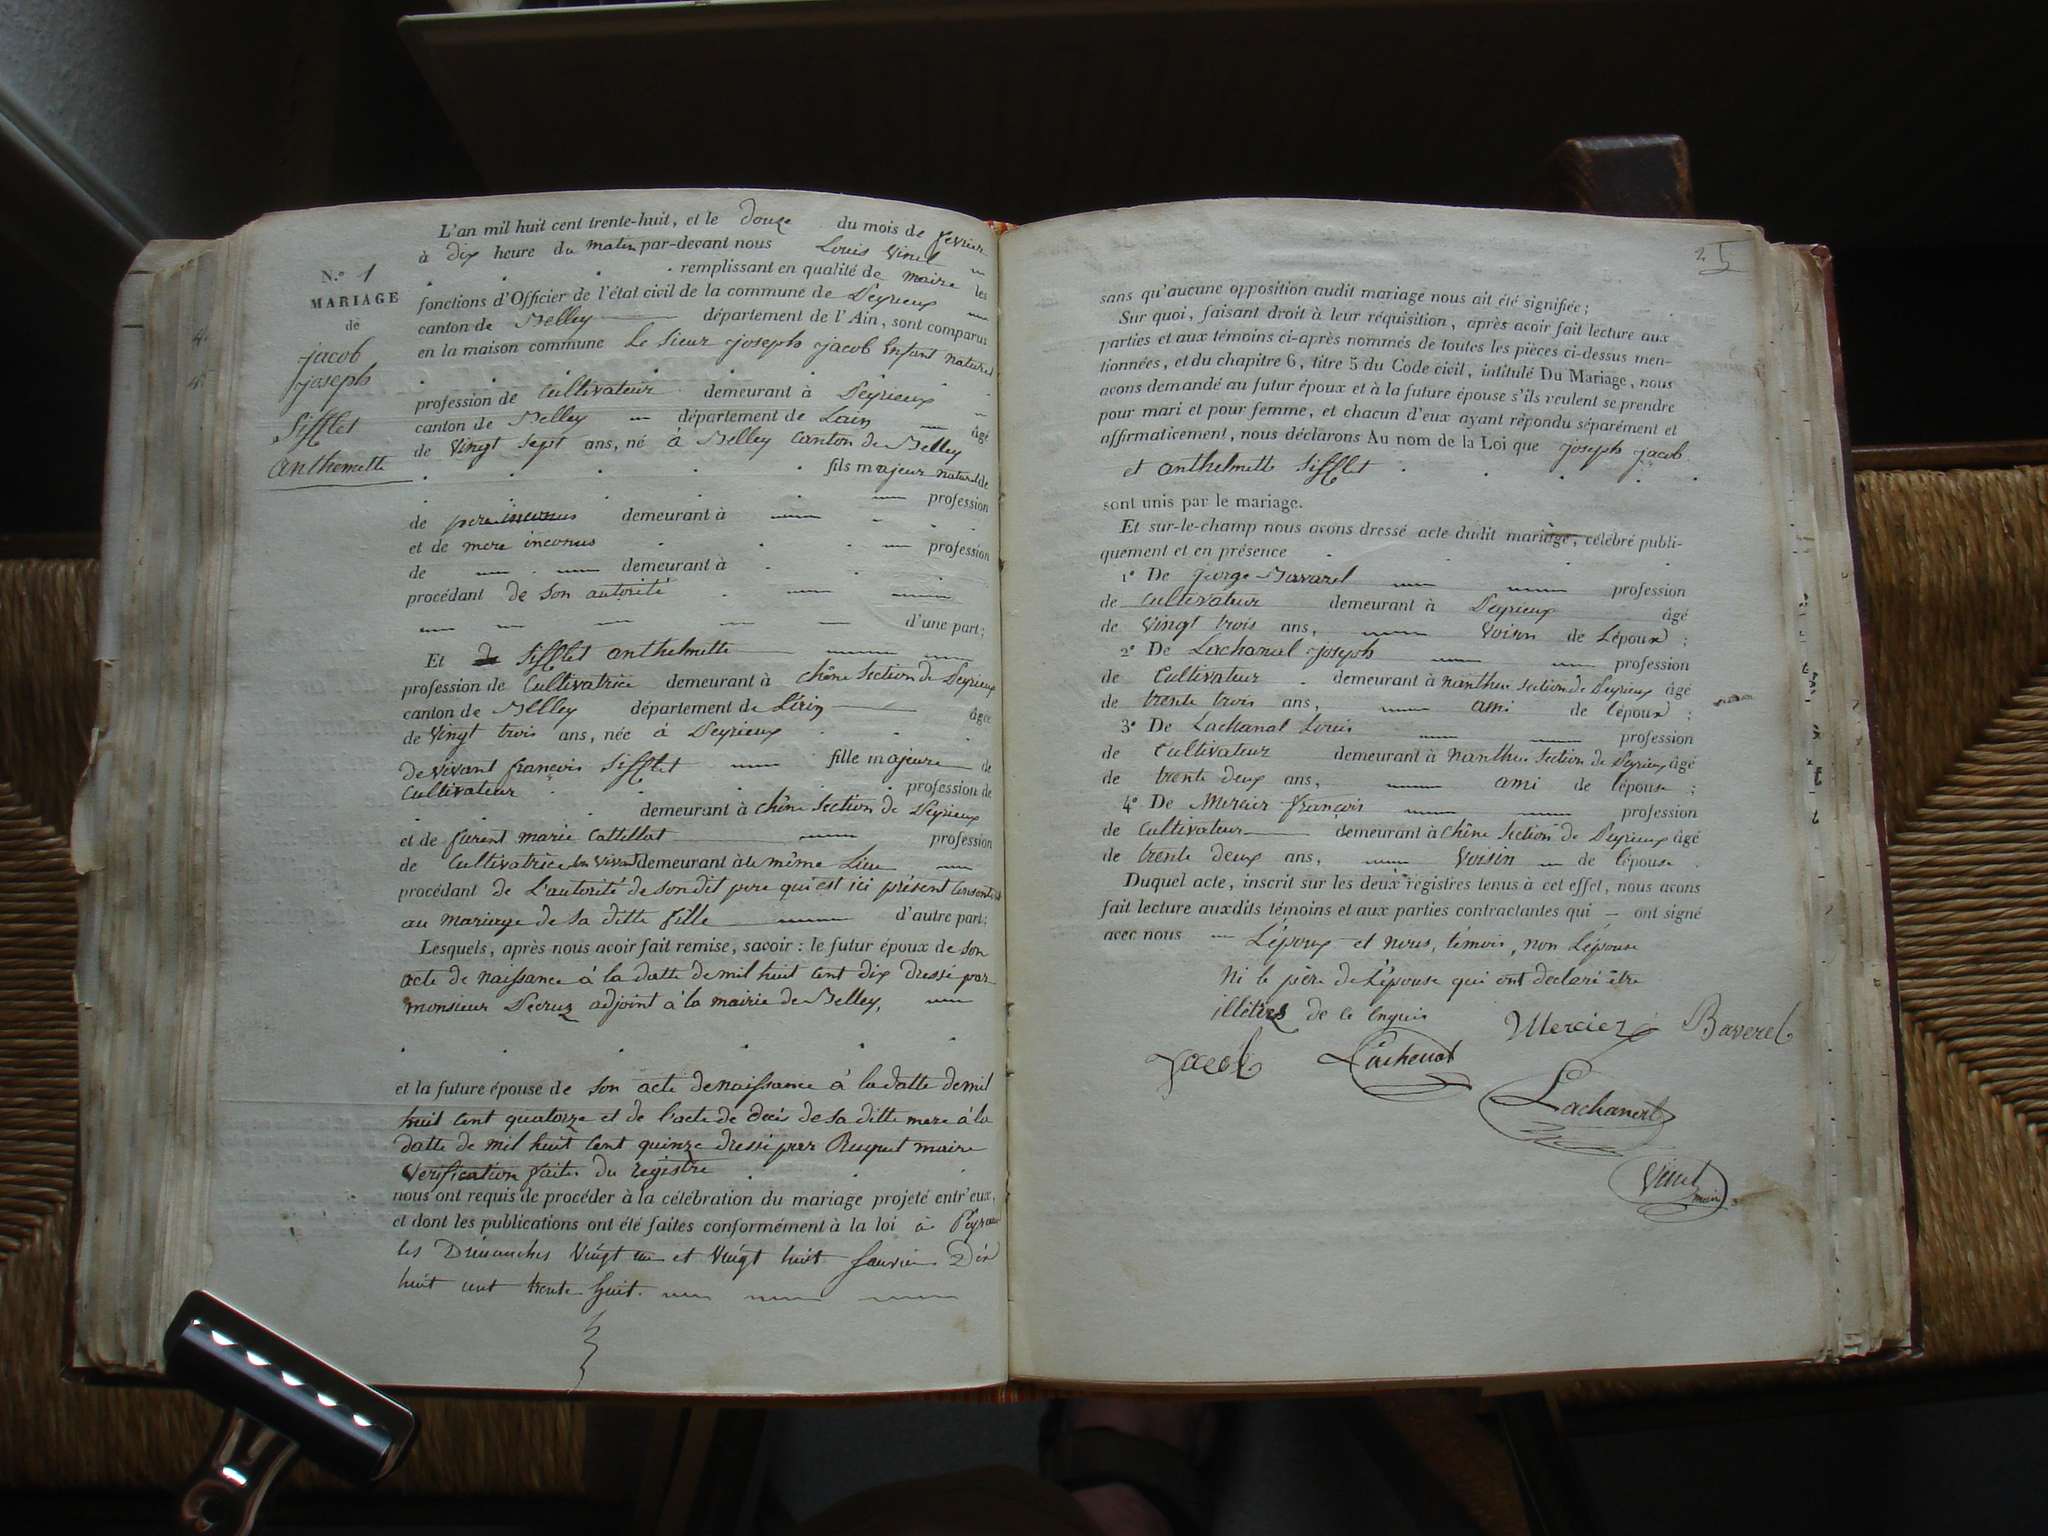 L'an mil huit cent trente-huit, et le douze du mois de fevrier
à dix heure du matin par-devant nous Louis Vinet
remplissant en qualité de maire les
fonctions d'Officier de l'état civil de la commune de Peyrieux
canton de Belley département de l'Ain, sont comparus
en la maison commune Le Sieur joseph jacob Enfant naturel
profession de Cultivateur demeurant à Peyrieux
canton de Belley département de Lain âgé
de Vingt Sept ans, né à Belley Canton de Belley
fils majeur naturel de
profession
de pere inconus demeurant à
et de mere inconus profession
de demeurant à
procédant de son autorité
d'une part;
Et de Sifflet anthelmette
profession de Cultivatrice demeurant à chêne Section de Peyrieux
canton de Belley département de L'ain âgée
de Vingt trois ans, née à Peyrieux
de Vivant françois Sifflet fille majeure de
Cultivateur profession de
demeurant à chêne Section de Peyrieux
et de furent marie Cattillat profession
de Cultivatrice En Vivant demeurant à le même Lieu
procédant de L'autorité de son dit pere qui est ici présent Consentant
au mariage de sa ditte fille d'autre part;
Lesquels, après nous avoir fait remise, savoir : le futur époux de son
acte de naissance à la datte de mil huit Cent dix dressé par
monsieur Decruz adjoint à la mairie de Belley,
et la future épouse de son acte de naissance à la datte de mil
huit Cent quatorze et de l'acte de décés de sa ditte mere à la
datte de mil huit Cent quinze dressé par Ruquet maire
Verification faite du registre
nous ont requis de procéder à la célébration du mariage projeté entr'eux,
et dont les publications ont été faites conformément à la loi à Peyrieux
les Dimanches Vingt un et Vingt huit Janvier Dix
huit cent trente huit.
N.º 1
MARIAGE
de
jacob
joseph
Sifflet
anthemette
25
sans qu'aucune opposition audit mariage nous ait été signifiée;
Sur quoi, faisant droit à leur réquisition, après avoir fait lecture aux
parties et aux témoins ci-après nommés de toutes les pièces ci-dessus men-
tionnées, et du chapitre 6, titre 5 du Code civil, intitulé Du Mariage, nous
avons demandé au futur époux et à la future épouse s'ils veulent se prendre
pour mari et pour femme, et chacun d'eux ayant répondu séparément et
affirmativement, nous déclarons Au nom de la Loi que joseph jacob
et anthelmette Sifflet
sont unis par le mariage.
Et sur-le-champ nous avons dressé acte dudit mariage, célébré publi-
quement et en présence
1º De jorge Bavarel profession
de Cultivateur demeurant à Peyrieux âgé
de Vingt trois ans, Voisin de L'époux ;
2º De Lachanal joseph profession
de Cultivateur demeurant à nanthu Section de Peyrieux âgé
de trente trois ans, ami de l'époux ;
3º De Lachanal Louis profession
de Cultivateur demeurant à nanthu Section de Peyrieux âgé
de trente deux ans, ami de l'épouse ;
4º De Mercier françois profession
de Cultivateur demeurant à Chêne Section de Peyrieux âgé
de trente deux ans, Voisin de l'épouse
Duquel acte, inscrit sur les deux registres tenus à cet effet, nous avons
fait lecture auxdits témoins et aux parties contractantes qui ont signé
avec nous L'époux et nous, témoin, non L'épouse
ni le père de L'épouse qui ont declaré être
illétirés de ce enquis
Mercier Baverel
Jacob Lachenal
Lachanal
Vinet
maire